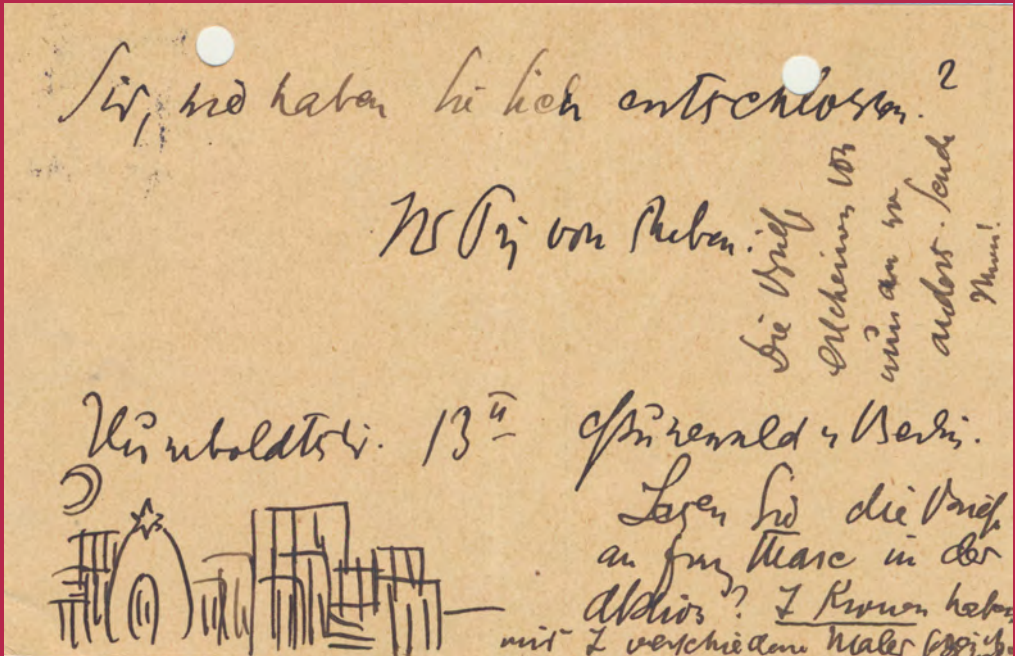 Sir, wie haben Sie sich entschlossen?
Ihr Prinz von Theben.
Die Briefe
erscheinen von
nun an wo
anders. Sende
Ihnen!
Humboldtstr. 13 II Grunewald Berlin.
Lesen Sie die Briefe
an Franz Marc in der
Aktion? 7 Kronen haben
mir 7 verschiedene Maler